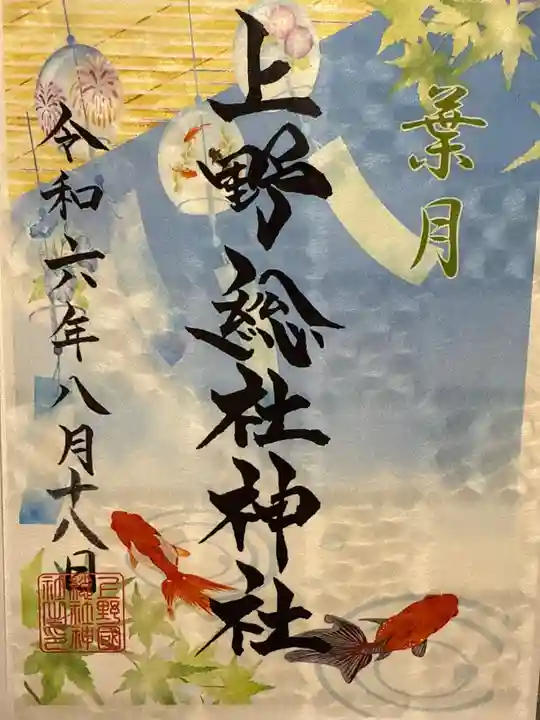 葉月
上野総社神社
令和六年八月十八日
上野國
総社神
社之印